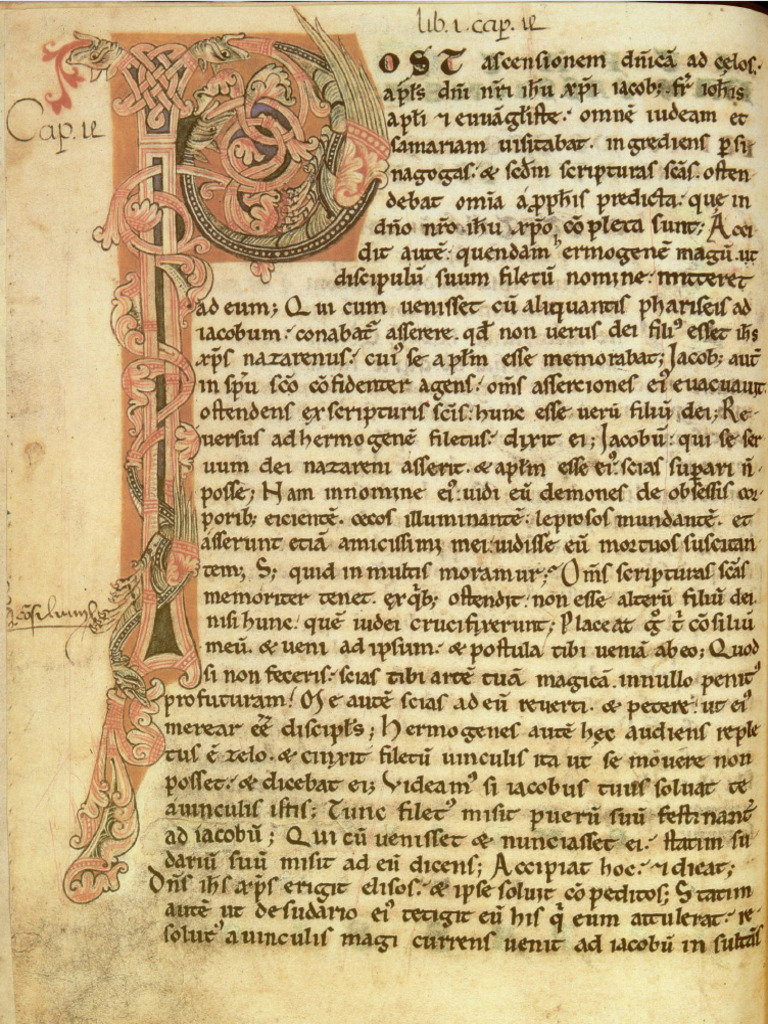 lib. 1. cap. 1e
Cap. 1e
POST ascensionem dñicã ad celos.
apłs dñi nr̃i ih̃u xp̃i iacob; fr̃ ioh̃is
apłi ⁊ euuãgłiste. omnẽ iudeam et
samariam uisitabat. ingrediens p̱ si
nagogas. & scđm scripturas scãs. osten
debat omĩa a p̱pħis predicta. que in
dño nr̃o ih̃u xp̃o, cõpleta sunt; Acci
dit autẽ. quendam hermogenẽ magũ. ut
discipulũ suum filetũ nomine. mitteret
ad eum; Qui cum uenisset cũ aliquantis phariseis ad
iacobum. conabat᷒ asserere. qđ non uerus dei filiꝰ esset ih̃s
xp̃s nazarenus. cuiꝰ se apłm esse memorabat; Jacob; aut̃
in sp̃u sc̃o cõfidenter agens. om̃s assertiones eiꝰ euacuauit.
ostendens ex scripturis sc̃is. hunc esse uerũ filiũ dei; Re
uersus ad hermogenẽ filetus. dixit ei; Jacobũ. qui se ser
uum dei nazareni asserit. & apłm esse eiꝰ. scias sup̱ari ñ
posse; Nam in nomine eiꝰ. uidi eũ demones de obsessis cor
porib; eicientẽ. cecos illuminantẽ. leprosos mundantẽ. et
asserunt etiã amicissimi mei. uidisse eũ mortuos suscitan
tem; S; quid in multis moramur; Om̃s scripturas scãs
memoriter tenet. ex qͥb; ostendit. non esse alterũ filiũ dei.
nisi hunc. quẽ iudei crucifixerunt; Placeat gͦ t̃ cõsiliũ
meũ. & ueni ad ipsum. & postula tibi ueniã ab eo; Quod
si non feceris. scias tibi artẽ tuã magicã. in nullo penitꝰ
profuturam! Me autẽ scias ad eũ reuerti. & petere. ut eiꝰ
merear eẽ discipłs; Hermogenes autẽ hec audiens reple
tus ẽ zelo. & cinxit filetũ uinculis ita ut se mouere non
posset. & dicebat ei; Videamꝰ si iacobus tuus soluat te
a uinculis istis; Tunc filetꝰ misit puerũ suũ festinant̃
ad iacobũ; Qui cũ uenisset & nunciasset ei. statim su
dariũ suũ misit ad eũ dicens; Accipiat hoc. ⁊ dicat;
Dñs ih̃s xp̃s erigit elisos. & ipse soluit cõpeditos; Statim
autẽ ut de sudario eiꝰ tetigit eũ his q̃ eum attulerat. re
solutꝰ a uinculis magi currens uenit ad iacobũ insultãs